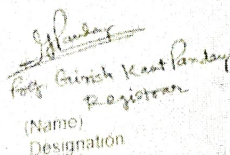 GPanday
Prof. Girish Kant Panday
Registrar
(Name)
Designation